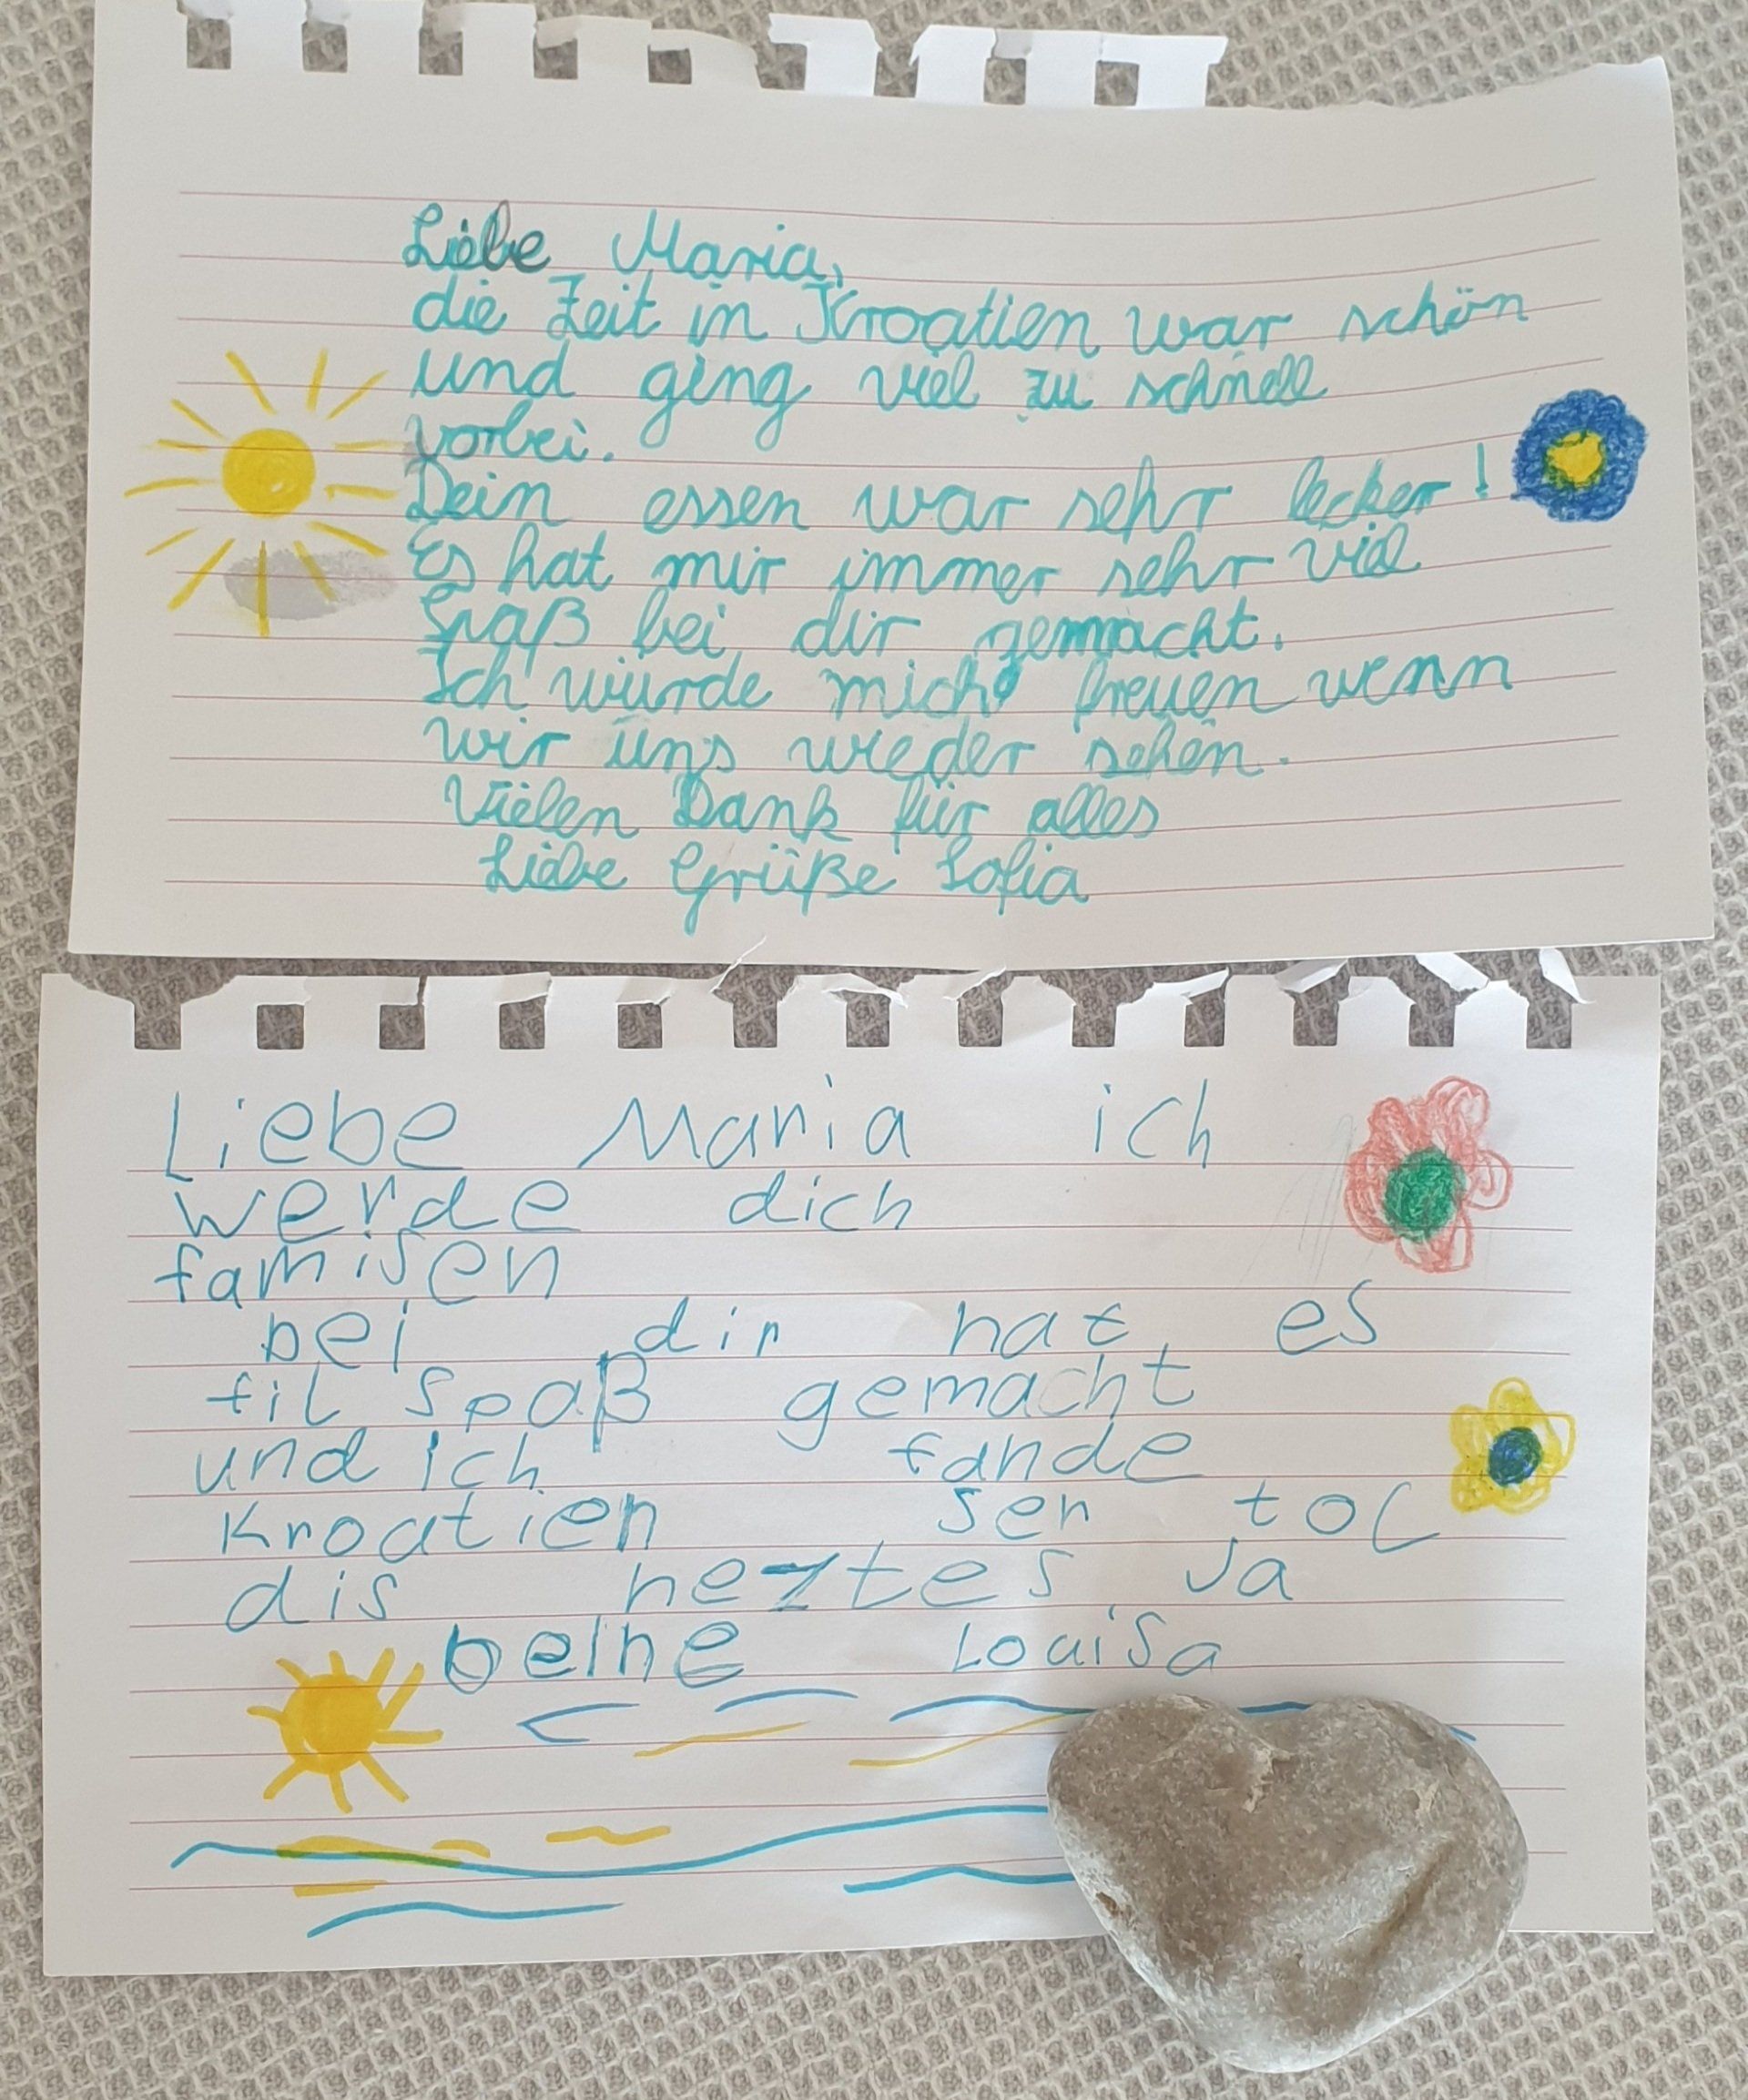 Liebe Maria,
die Zeit in Kroatien war schön
und ging viel zu schnell
vorbei.
Dein essen war sehr lecker!
Es hat mir immer sehr viel
Spaß bei dir gemacht.
Ich würde mich freuen wenn
wir uns wieder sehen.
Vielen Dank für alles
Liebe Grüße Sofia
Liebe Maria ich
werde dich
famisen
bei dir hat es
fil Spaß gemacht
und ich fande
Kroatien ser tol
dis neztes Ja
deine Louisa